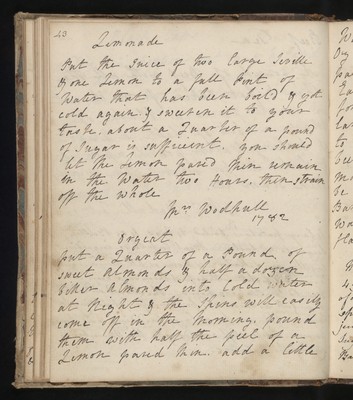 40
Limonade
Put the Juice of two large Siville
& one Lemon to a full Pint of
Water that has been boil'd & got
cold again & sweeten it to your
taste. about a Quarter of a pound
of Sugar is sufficient. you should
let the Lemon pared thin remain
in the Water two Hours, then strain
off the whole
Mrs Wodhull
1782
Orgeat
put a Quarter of a Pound, of
sweet Almonds & half a dozen
bitter Almonds into Cold Water
at Night & the Skins will easily
come off in the Morning. pound
them with half the peel of a
Lemon pared thin. add a little